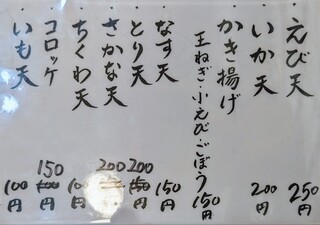 えび天 250円
いか天 200円
かき揚げ
玉ねぎ・小えび・ごぼう 150円
なす天 150円
とり天 200 150円
さかな天 200 円
ちくわ天 100円
コロッケ 150 100円
いも天 100円